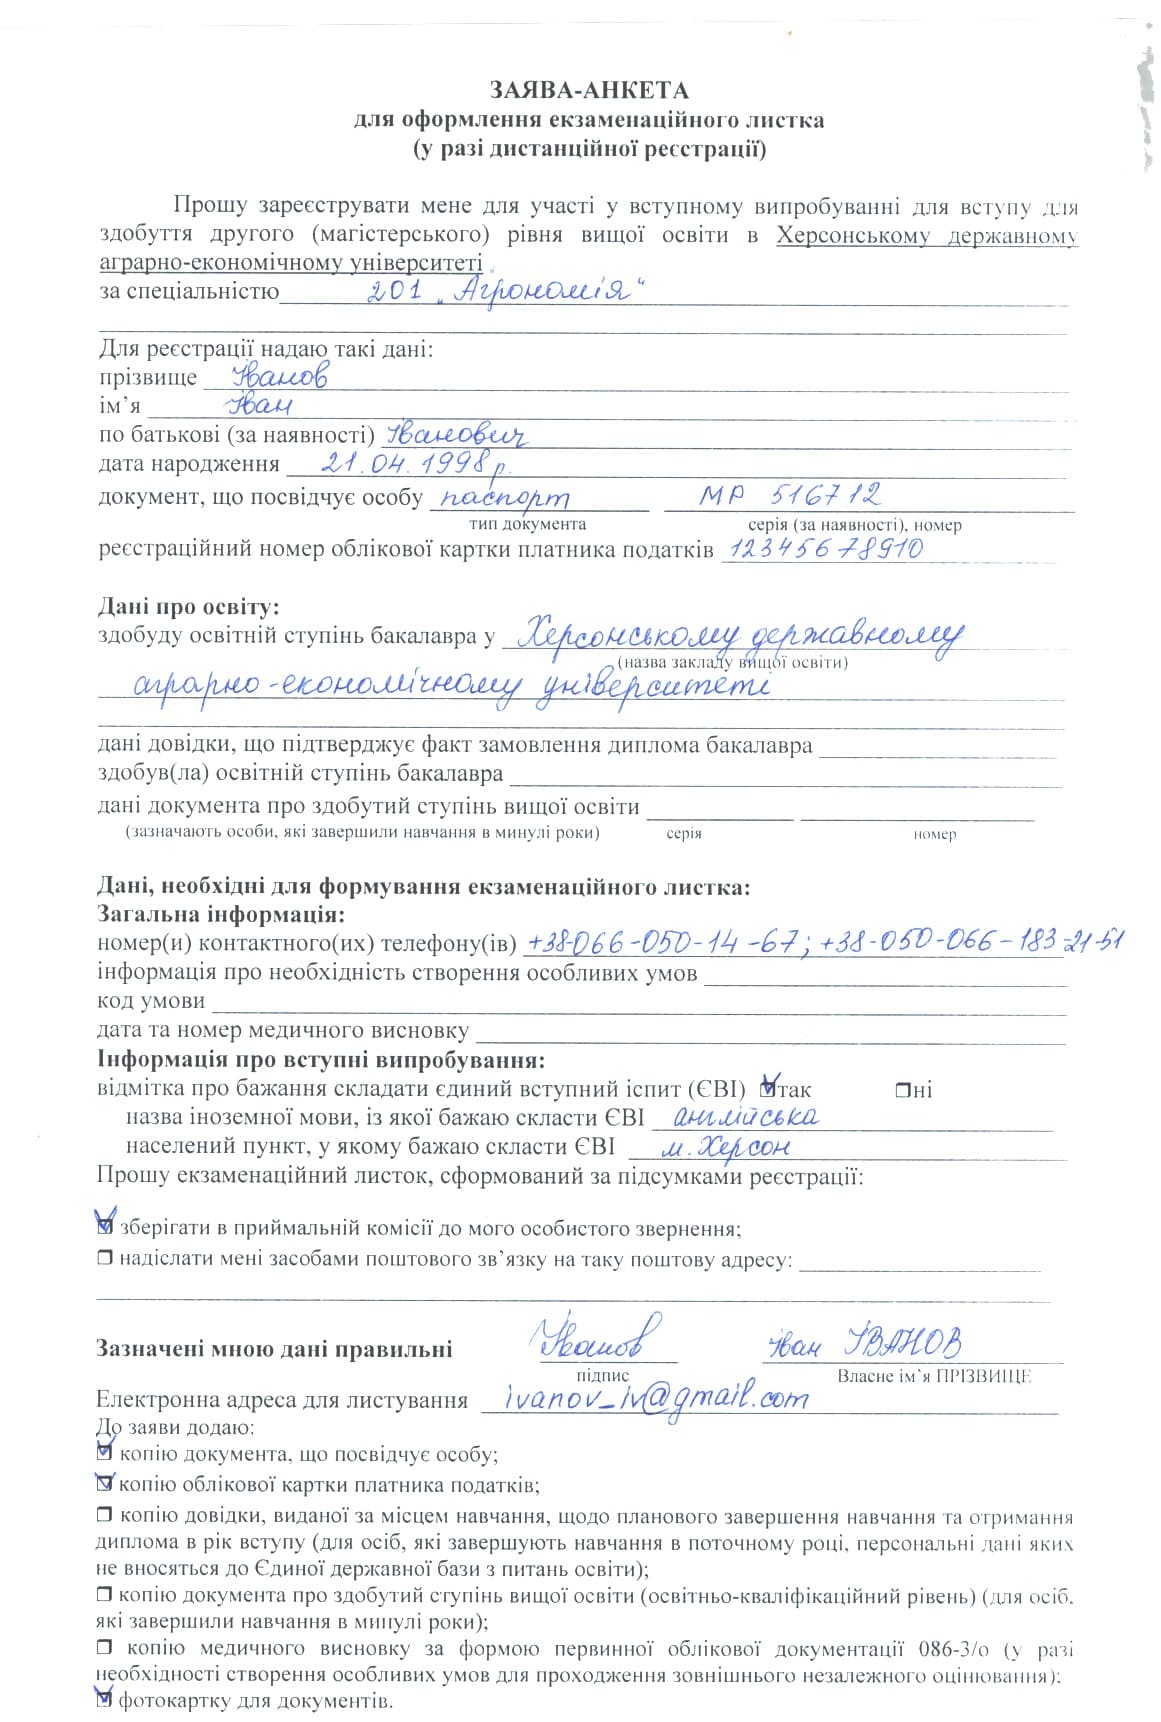 ЗАЯВА-АНКЕТА
для оформлення екзаменаційного листка
(у разі дистанційної реєстрації)
Прошу зареєструвати мене для участі у вступному випробуванні для вступу для
здобуття другого (магістерського) рівня вищої освіти в Херсонському державному
аграрно-економічному університеті
за спеціальністю 201 „Агрономія"
Для реєстрації надаю такі дані:
прізвище Іванов
ім’я Іван
по батькові (за наявності) Іванович
дата народження 21.04.1998р.
документ, що посвідчує особу паспорт МР 516712
тип документа серія (за наявності), номер
реєстраційний номер облікової картки платника податків 12345678910
Дані про освіту:
здобуду освітній ступінь бакалавра у Херсонському державному
(назва закладу вищої освіти)
аграрно-економічному університеті
дані довідки, що підтверджує факт замовлення диплома бакалавра
здобув(ла) освітній ступінь бакалавра
дані документа про здобутий ступінь вищої освіти
(зазначають особи, які завершили навчання в минулі роки) серія номер
Дані, необхідні для формування екзаменаційного листка:
Загальна інформація:
номер(и) контактного(их) телефону(ів) +38-066-050-14-67; +38-050-066-183-21-51
інформація про необхідність створення особливих умов
код умови
дата та номер медичного висновку
Інформація про вступні випробування:
відмітка про бажання складати єдиний вступний іспит (ЄВІ) ☑так ☐ні
назва іноземної мови, із якої бажаю скласти ЄВІ англійська
населений пункт, у якому бажаю скласти ЄВІ м. Херсон
Прошу екзаменаційний листок, сформований за підсумками реєстрації:
☑ зберігати в приймальній комісії до мого особистого звернення;
☐ надіслати мені засобами поштового зв’язку на таку поштову адресу:
Зазначені мною дані правильні Іванов Іван ІВАНОВ
підпис Власне ім`я ПРІЗВИЩЕ
Електронна адреса для листування ivanov_iv@gmail.com
До заяви додаю:
☑ копію документа, що посвідчує особу;
☑ копію облікової картки платника податків;
☐ копію довідки, виданої за місцем навчання, щодо планового завершення навчання та отримання
диплома в рік вступу (для осіб, які завершують навчання в поточному році, персональні дані яких
не вносяться до Єдиної державної бази з питань освіти);
☐ копію документа про здобутий ступінь вищої освіти (освітньо-кваліфікаційний рівень) (для осіб,
які завершили навчання в минулі роки);
☐ копію медичного висновку за формою первинної облікової документації 086-3/о (у разі
необхідності створення особливих умов для проходження зовнішнього незалежного оцінювання);
☑ фотокартку для документів.